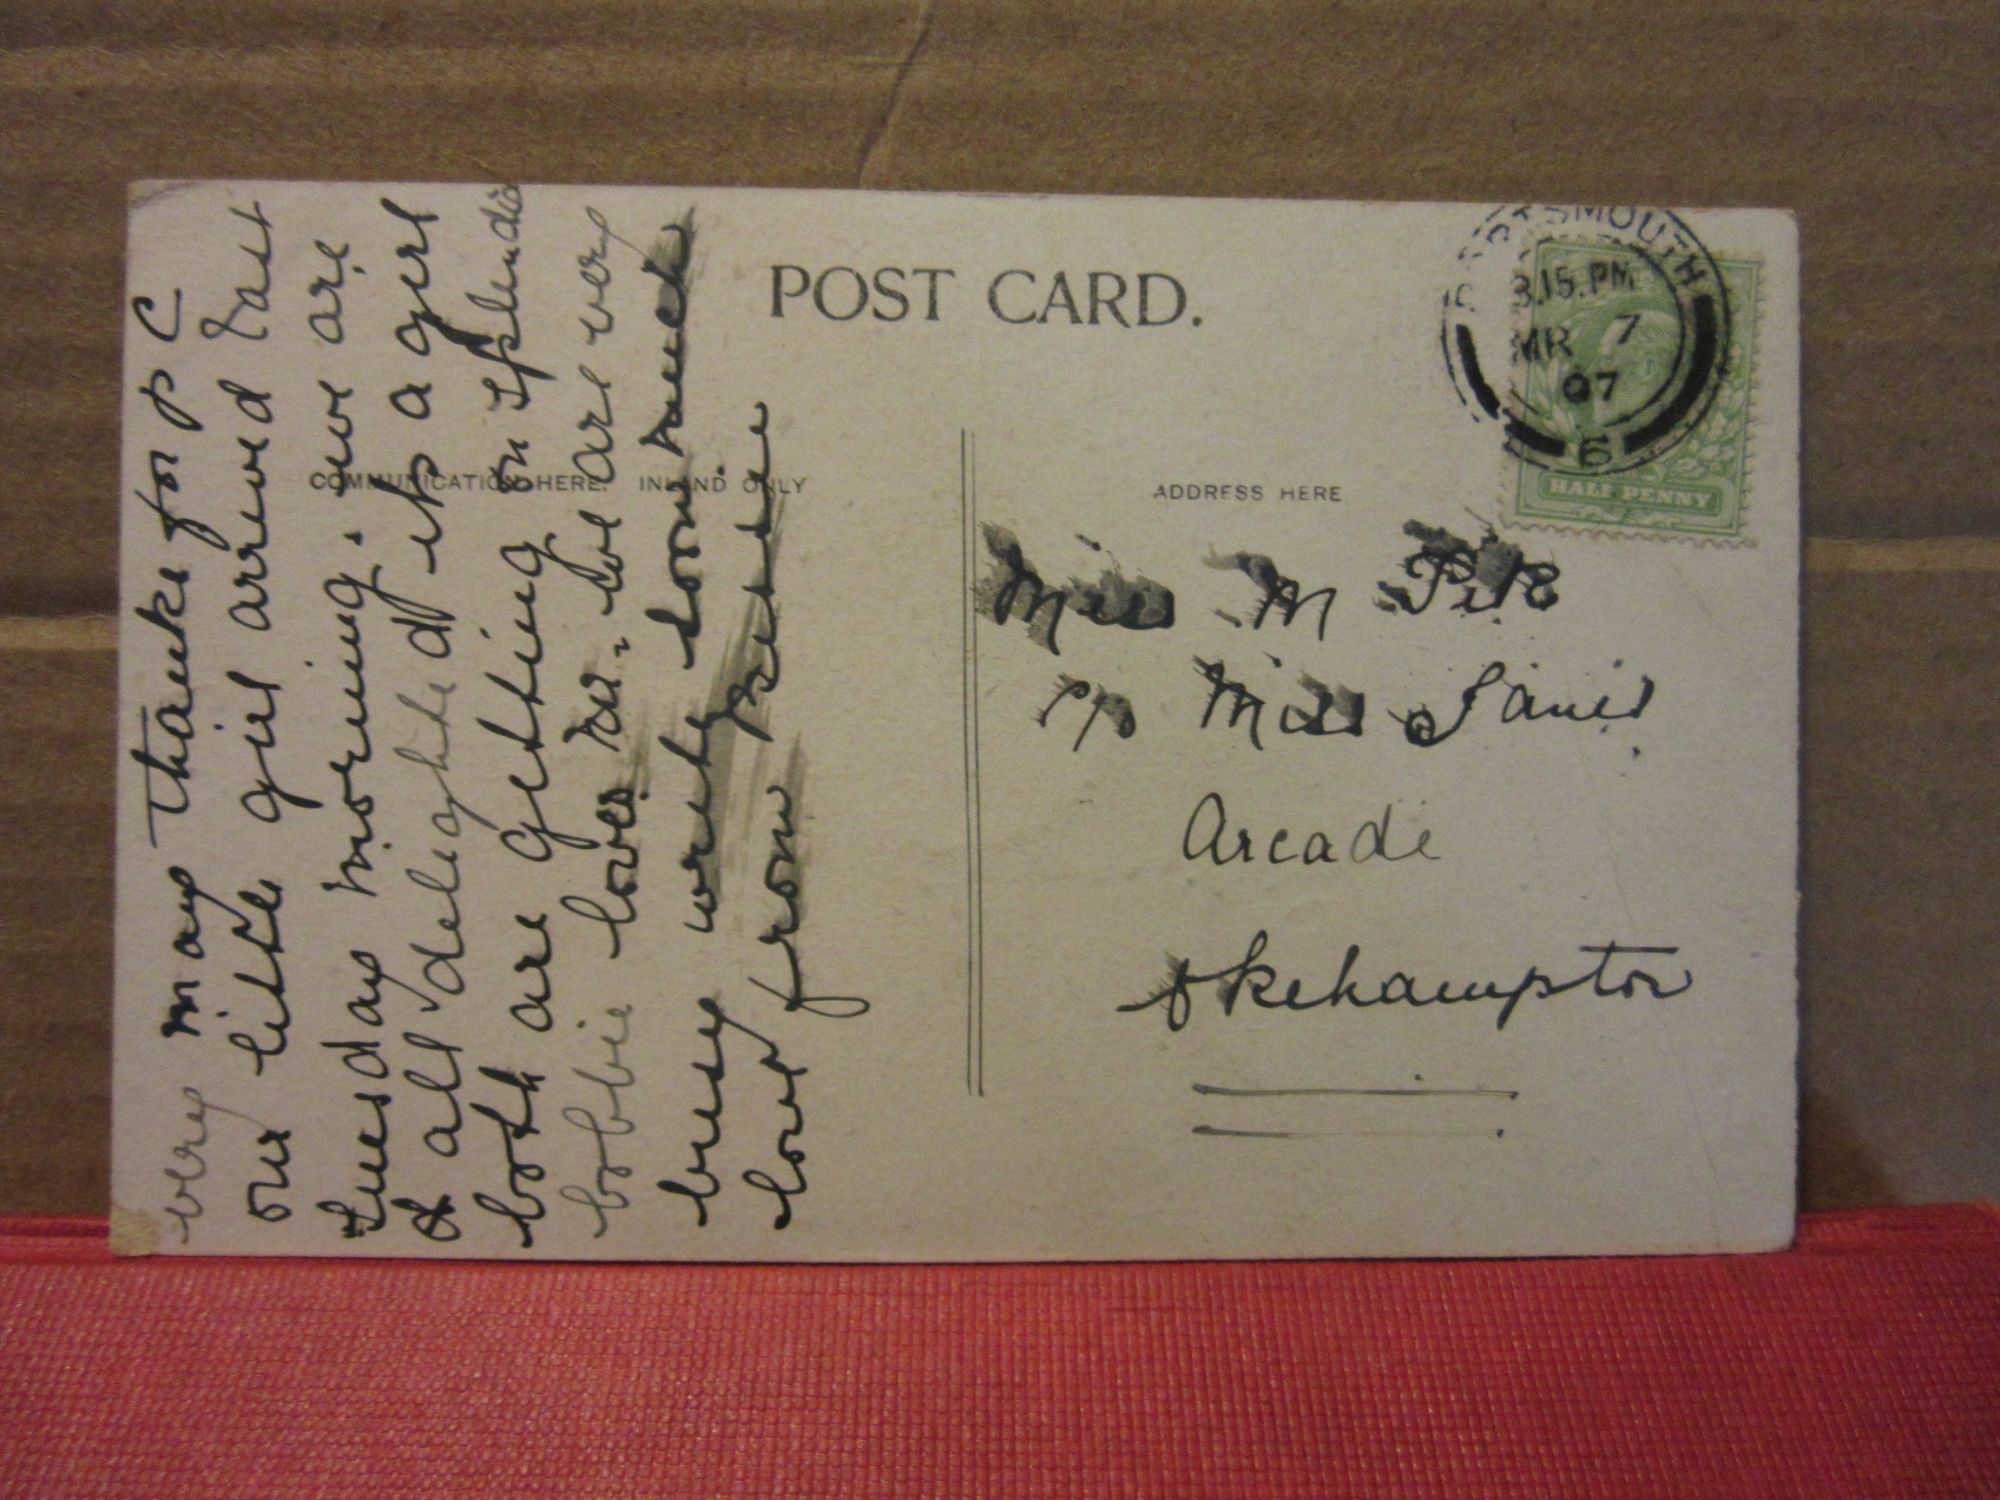 POST CARD.
COMMUNICATION HERE. INLAND ONLY
ADDRESS HERE
very many thanks for p c
our little girl arrived last
tuesday morning. we are
& all delighted its a girl
both are getting on splendid
bobbie loves her. we are very
busy write soon much
love from
PORTSMOUTH
3.15.PM
MR 7
07
6
HALF PENNY
Miss M
c/o Miss
Arcade
Okehampton